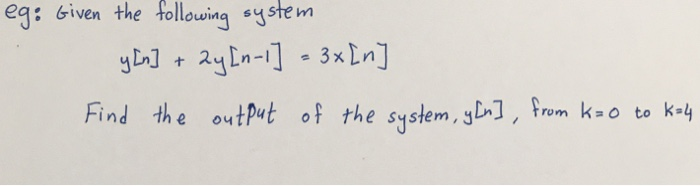 eg: Given the following system
y[n] + 2y[n-1] = 3x[n]
Find the output of the system, y[n], from k=0 to k=4